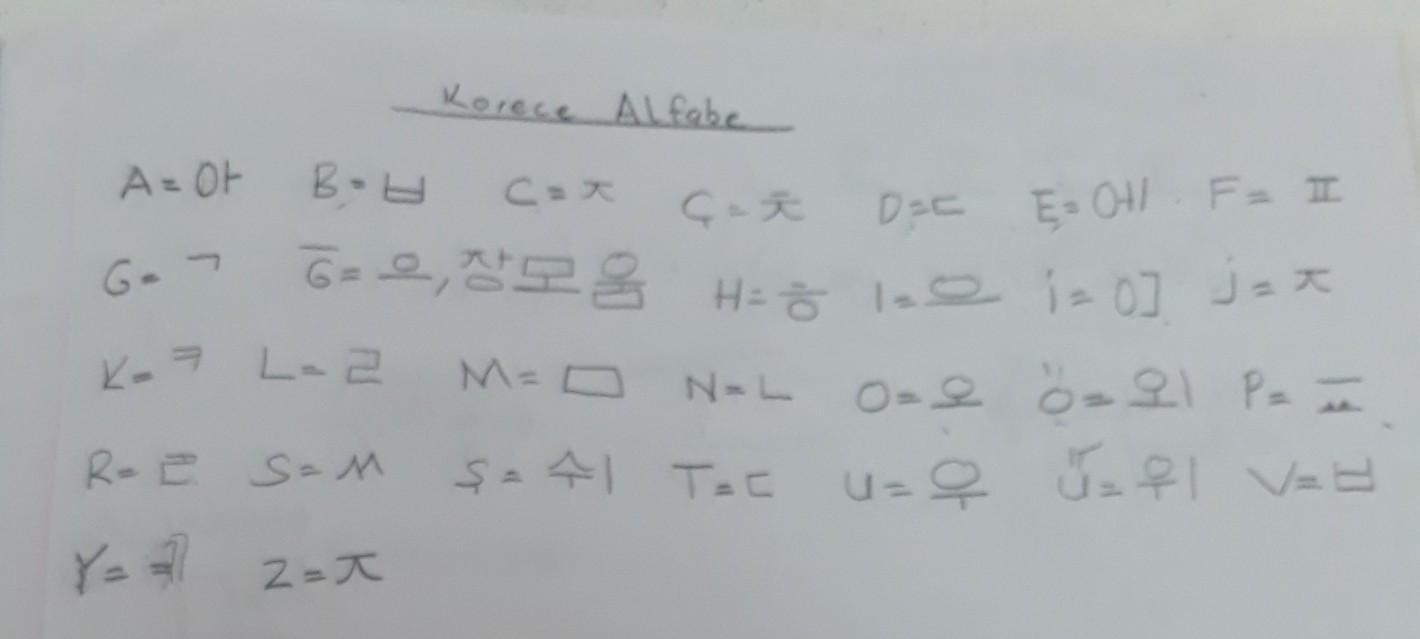 Korece Alfabe
A=아 B=ㅂ C=ㅈ Ç=ㅊ D=ㄷ E=에 F=ㅍ
G=ㄱ Ğ=으,장모음 H=ㅎ I=으 i=이 j=ㅈ
K=ㅋ L=ㄹ M=ㅁ N=ㄴ O=오 Ö=외 P=ㅍ
R=ㄹ S=ㅅㅅ Ş=쉬 T=ㄷ U=우 Ü=위 V=ㅂ
Y= Z=ㅈ